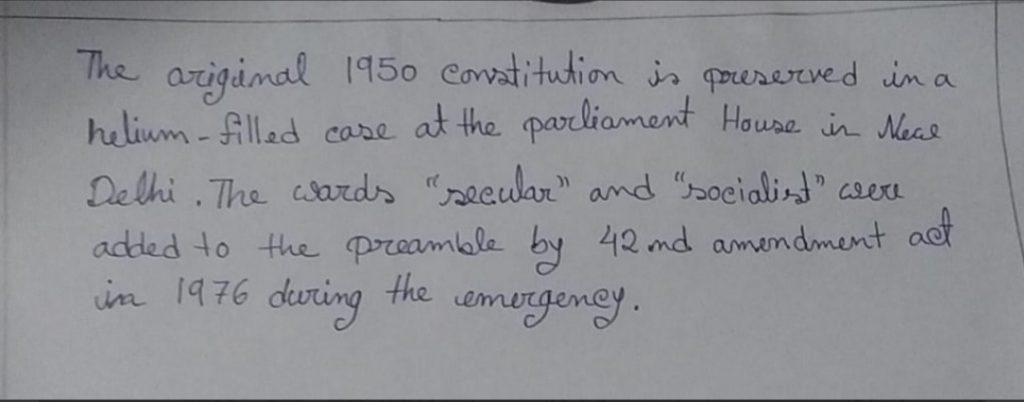 The original 1950 constitution is preserved in a
helium-filled case at the parliament House in New
Delhi. The words "secular" and "socialist" were
added to the preamble by 42nd amendment act
in 1976 during the emergency.